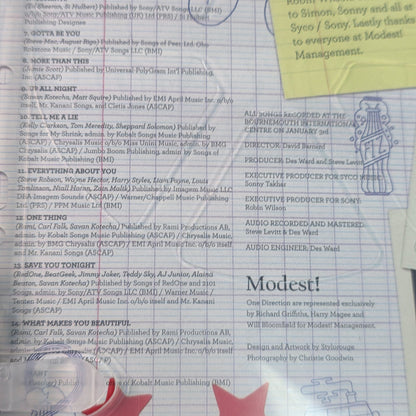 (Ed Sheeran, Si Hulbert) Published by Sony/ATV Songs LLC (BMI)
o/b/o Sony/ATV Music Publishing (UK) Ltd (PRS) / Si Hulbert
Publishing Designee
7. GOTTA BE YOU
(Steve Mac, August Rigo) Published by Songs of Peer, Ltd. Obo
Rokstone Music / Sony/ATV Songs LLC (BMI)
8. MORE THAN THIS
(Jamie Scott) Published by Universal-PolyGram Int'l Publishing,
Inc. (ASCAP)
9. UP ALL NIGHT
(Savan Kotecha, Matt Squire) Published by EMI April Music Inc. o/b/o
itself, Mr. Kanani Songs, and Cleta Jones (ASCAP)
10. TELL ME A LIE
(Kelly Clarkson, Tom Meredith, Sheppard Solomon) Published by
Songs for My Shrink, admin. by Kobalt Songs Music Publishing
(ASCAP) / Chrysalis Music o/b/o Miss Unini Music, admin. by BMG
Chrysalis (ASCAP) / Jumbo Boom Publishing, admin by Songs of
Kobalt Music Publishing (BMI)
11. EVERYTHING ABOUT YOU
(Steve Robson, Wayne Hector, Harry Styles, Liam Payne, Louis
Tomlinson, Niall Horan, Zain Malik) Published by Imagem Music LLC
DBA Imagem Sounds (ASCAP) / Warner/Chappell Music Publishing
Ltd (PRS) / PPM Music Ltd (BMI)
12. ONE THING
(Rami, Carl Falk, Savan Kotecha) Published by Rami Productions AB,
admin. by Kobalt Songs Music Publishing (ASCAP) / Chrysalis Music,
admin. by BMG Chrysalis (ASCAP) / EMI April Music Inc. o/b/o itself
and Mr. Kanani Songs (ASCAP)
13. SAVE YOU TONIGHT
(RedOne, BeatGeek, Jimmy Joker, Teddy Sky, AJ Junior, Alaina
Beaton, Savan Kotecha) Published by Songs of RedOne and 2101
Songs, admin. by Sony/ATV Songs LLC (BMI) / Warner Music /
Tenters Music / EMI April Music Inc. o/b/o itself and Mr. Kanani
Songs (ASCAP)
14. WHAT MAKES YOU BEAUTIFUL
(Rami, Carl Falk, Savan Kotecha) Published by Rami Productions AB,
admin. by Kobalt Songs Music Publishing (ASCAP) / Chrysalis Music,
admin. by BMG Chrysalis (ASCAP) / EMI April Music Inc. o/b/o itself and
(ASCAP)
Published of Kobalt Music Publishing (BMI)
to Simon, Sonny and all at
Syco / Sony. Lastly thanks
to everyone at Modest!
Management.
ALL SONGS RECORDED AT THE
BOURNEMOUTH INTERNATIONAL
CENTRE ON JANUARY 3rd
DIRECTOR: David Barnard
PRODUCER: Des Ward and Steve Levitt
EXECUTIVE PRODUCER FOR SYCO MUSIC:
Sonny Takhar
EXECUTIVE PRODUCER FOR SONY:
Robin Wilson
AUDIO RECORDED AND MASTERED:
Steve Levitt & Des Ward
AUDIO ENGINEER: Des Ward
FIZ
Modest!
One Direction are represented exclusively
by Richard Griffiths, Harry Magee and
Will Bloomfield for Modest! Management.
Design and Artwork by Stylorouge
Photography by Christie Goodwin